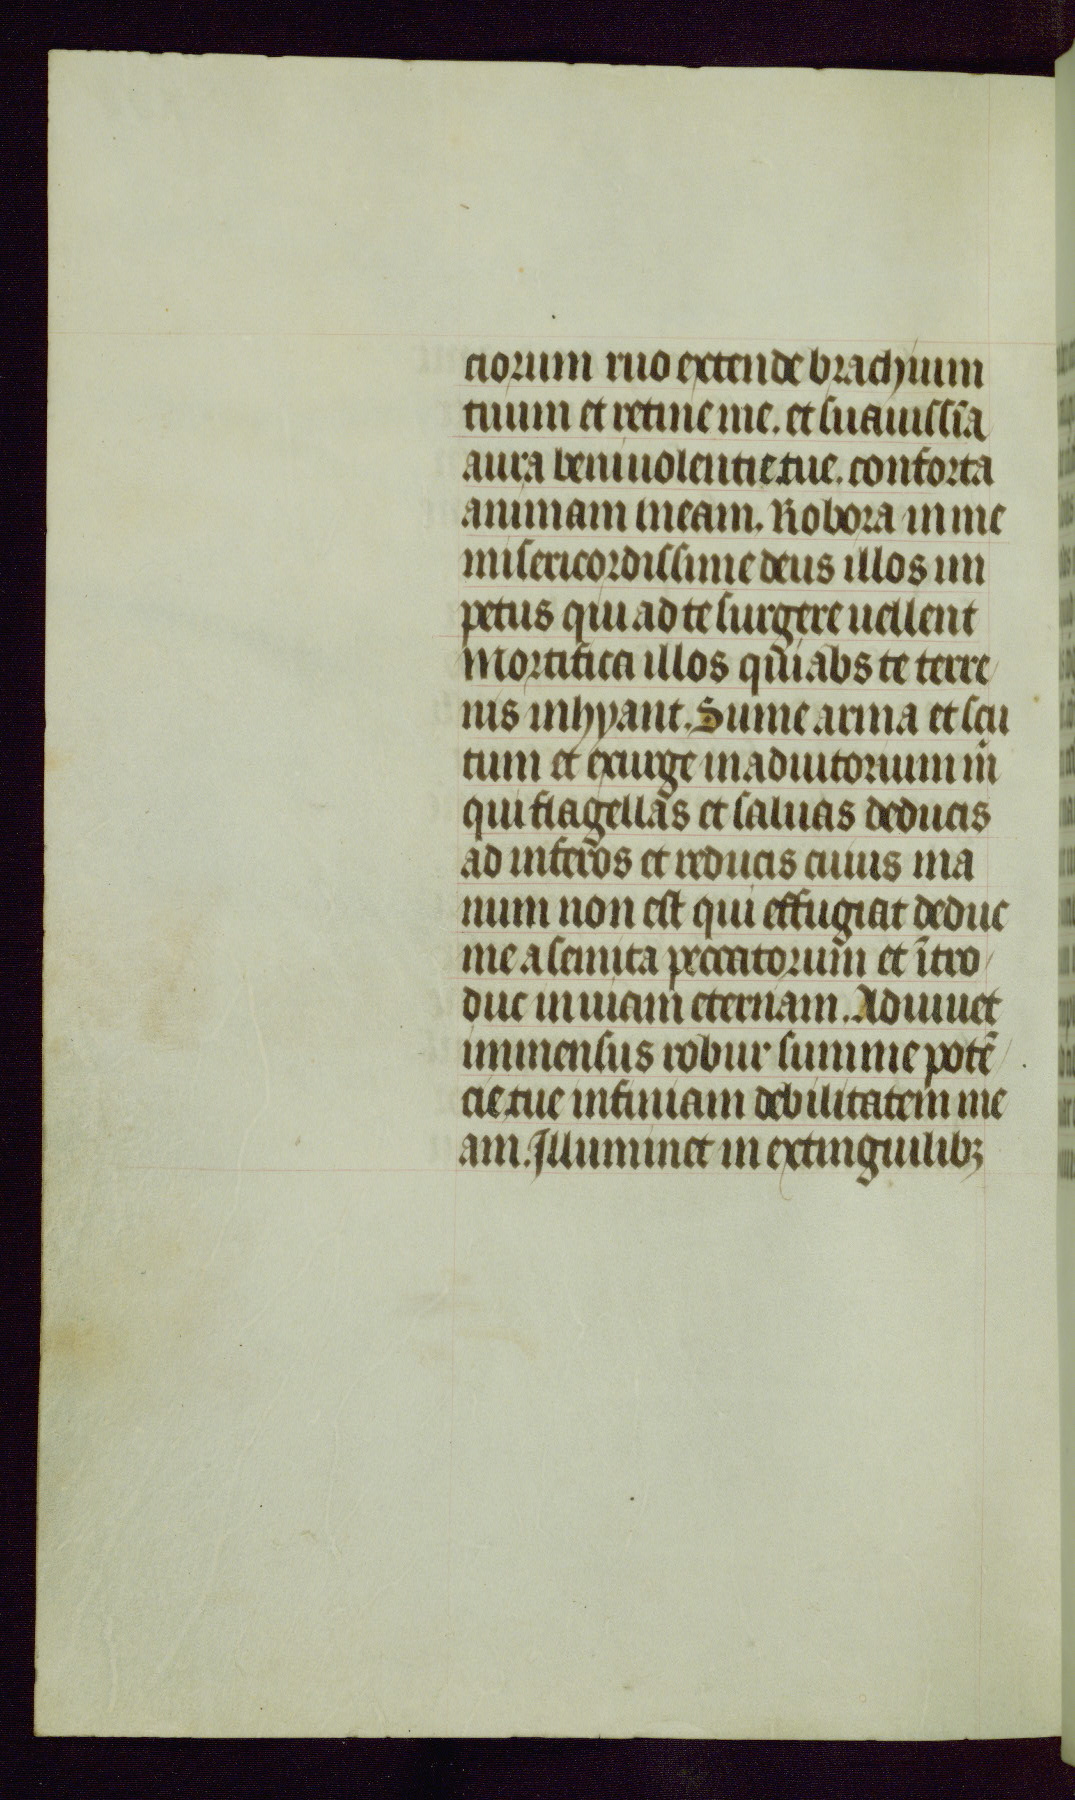 ciorum ruo extende brachium
tuum et retine me. et suauissīa
aura beniuolentie tue. conforta
animam meam. Robora in me
misericordissime deus illos im
petus qui ad te surgere uellent
Mortifica illos qui abs te terre
nis inhyant. Sume arma et scu
tum et exurge in adiutorium m̄
qui flagellas et saluas deducis
ad inferos et reducis cuius ma
num non est qui effugiat deduc
me a semita peccatorum et ītro
duc in uiam eternam. Adiuuet
immensus robur summe potē
cie tue infimam debilitatem me
am. Illuminet in extinguilibꝫ